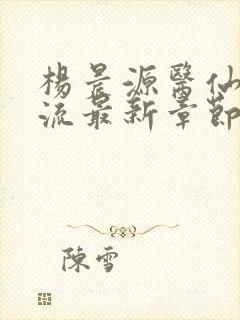 楊晨源醫仙
流最新章節
陳雪